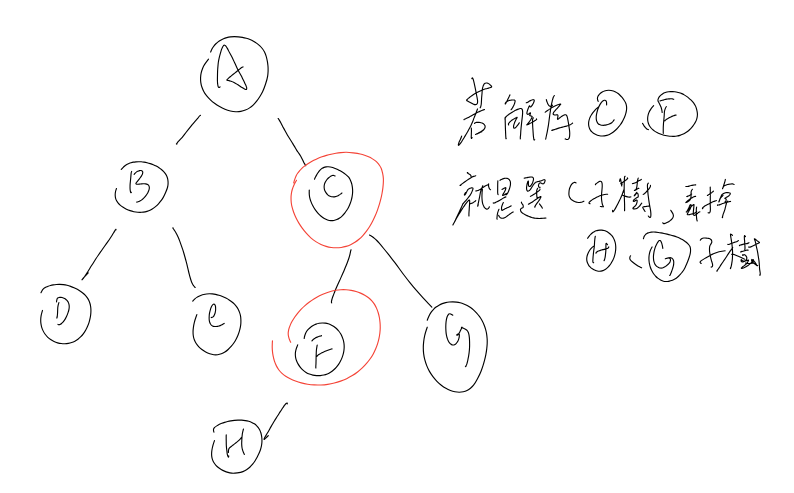 A
B
C
D
e
F
G
H
若解為 C、F
就是選 C子樹，丟掉
H、G子樹